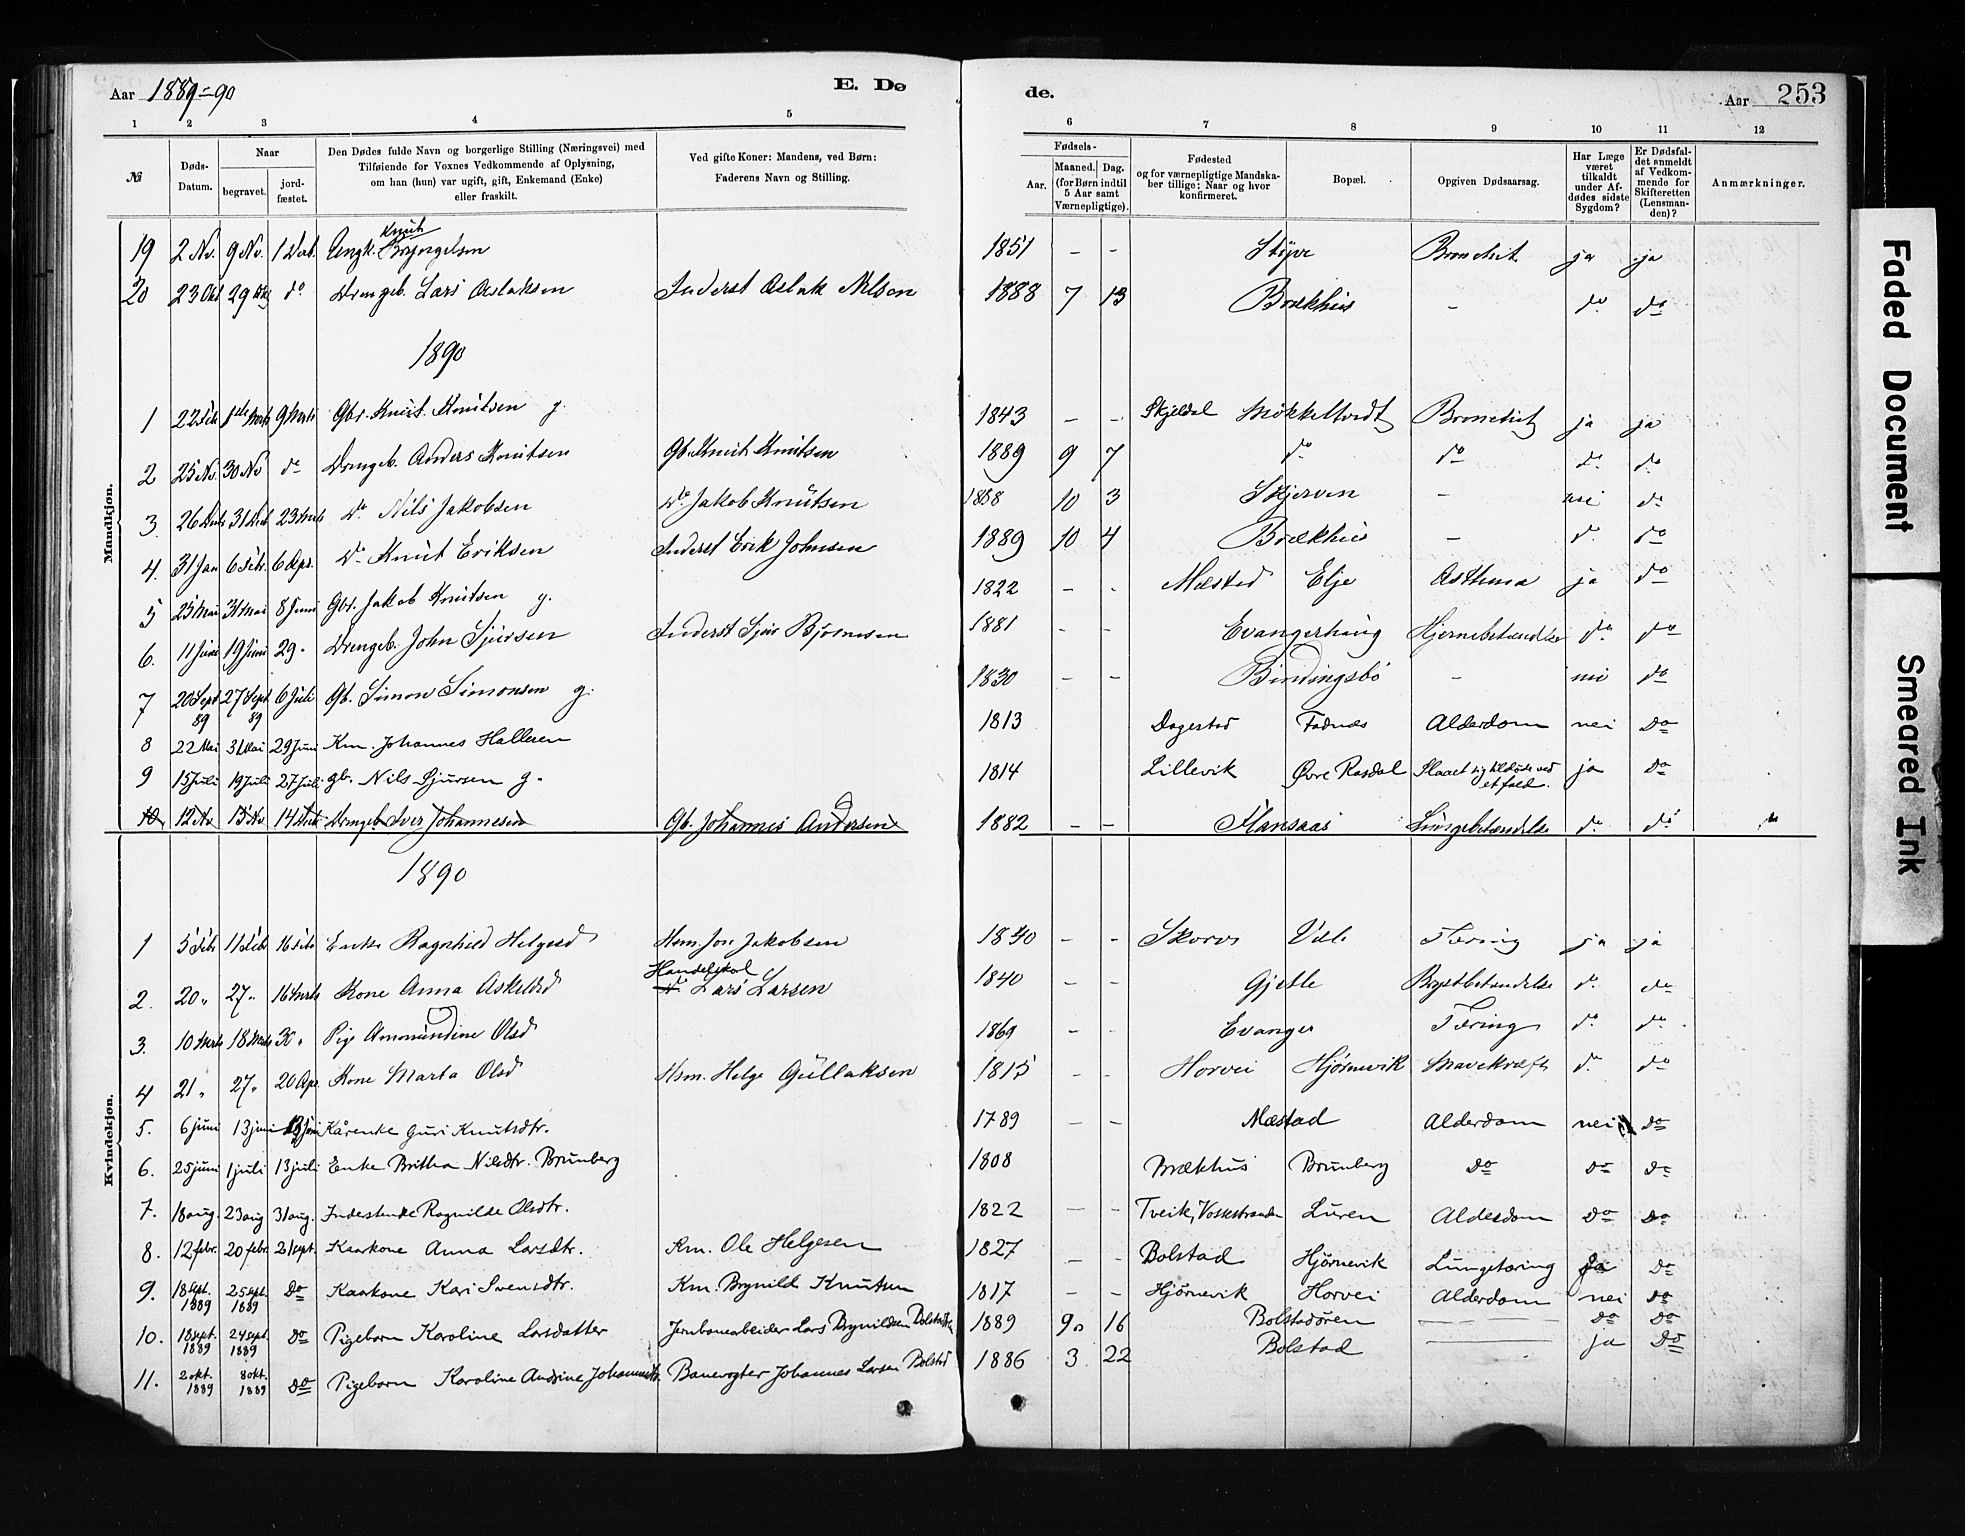 Aar 1889-90
E. Dø
de.
Aar 253
1 2 3 4 5 6 7 8 9 10 11 12
№
Døds-Datum.
Naar
begravet.
jord-fæstet.
Den Dødes fulde Navn og borgerlige Stilling (Næringsvei) med
Tilføiende for Voxnes Vedkommende af Oplysning,
om han (hun) var ugift, gift, Enkemand (Enke)
eller fraskilt.
Ved gifte Koner: Mandens, ved Børn:
Faderens Navn og Stilling.
Fødsels-
Aar.
Maaned. Dag.
(for Børn indtil
5 Aar samt
Værnepligtige).
Fødested
og for værnepligtige Mandska-
ber tillige: Naar og hvor
konfirmeret.
Bopæl.
Opgiven Dødsaarsag.
Har Læge
været
tilkaldt
under Af-
dødes sidste
Sygdom?
Er Dødsfal-
det anmeldt
af Vedkom-
mende for
Skifteretten
(Lensman-
den)?
Anmærkninger.
Mandkjøn.
19 2 Nv. 9 Nv. 1 Deb. Ungk. Knut Bryngelsen 1851 - - Styve Bronchit ja ja
20 23 Okt 29 Okt do Drengeb. Lars Aslaksen Inderst Aslak Nilsen 1888 7 13 Brækhus - do do
1890
1 22 Feb 1ste Marts 9 Marts Gbr. Knut Knutsen g. 1843 - - Skjeldal Mökkeltvedt Bronchit ja ja
2 25 Nv. 30 Nv do Drengeb. Anders Knutsen Gb. Knut Knutsen 1889 9 7 do do do do
3. 26 Dets 31 Det 23 Mrts do Nils Jakobsen do Jakob Knutsen 1888 10 3 Skjerven - nei do
4. 31 Jan 6 Febr. 6 Apr. do Knut Eriksen Inderst Erik Johnsen 1889 10 4 Brækhus - do do
5 25 Mai 31 Mai 8 Juni Gbr. Jakob Knutsen g. 1822 - - Mæstad Elje Asthma ja do
6. 11 Juni 19 Juni 29 - Drengeb. John Sjursen Inderst Sjur Bjørnesen 1881 - - Evangerhaug Hjernebetændelse do do
7 20 Sept 89 27 Sept 89 6 Juli Gb. Simon Simonsen g. 1830 - - Bindingsbö - nei do
8 22 Mai 31 Mai 29 Juni Km. Johannes Hallesen 1813 Dagestad Fadnæs Alderdom nei Do
9 15 Juli 19 Juli 27 Juli gb. Nils Sjursen g. 1814 Lillevik Øvre Rasdal Slaaet sig tildøde ved et fald. ja do
10. 12 Nv 15 Nv 14 Deb Drengeb. Iver Johannesen Gb. Johannes Andersen 1882 - - Flansaas Lungebetændelse do do
1890
Kvindekjøn.
1 5 Feb 11 Feb 16 Feb Enke Ragnhild Helgesd Hsm. Jon Jakobsen 1840 - - Skorve Væle Tæring ja ja
2. 20 " 27 " 16 Marts Kone Anna Askelsd Handelskarl Lars Larsen 1840 - - Gjelle Brystbetændelse do do
3. 10 Marts 18 Marts 30 " Pige Amundine Olsd 1869 - - Evanger Tæring do do
4 21 " 27 " 20 Apr. Kone Marta Olsd Hsm. Helge Gullaksen 1815 - - Horvei Hjørnevik Mavekræft do do
5. 6 juni 13 juni Kårenke Guri Knutsdtr. 1789 - - Mæstad Alderdom nei do
6. 25 juni 1 juli 13 juli Enke Britha Nilsdtr. Brunberg 1808 Brækhus Brunberg do do do
7. 18 aug. 23 aug 31 aug. Indestenke Ragnilde Olsdtr. 1822 - - Tveite, Vossestranden Luren Alderdom do do
8. 12 febr. 20 febr. 21 sept. Kaarkone Anna Larsdtr. Km. Ole Helgesen 1827 - - Bolstad Hjørnevik Lungetæring Ja do
9. 18 sept. 1889 25 sept. 1889 Do Kaarkone Kari Svensdtr. Km. Brynild Knutsen 1817 - - Hjørnevik Horvei Alderdom nei do
10. 18 sept. 1889 24 sept. 1889 Do Pigebarn Karoline Larsdatter Jernbanearbeider Lars Brynildsen 1889 9 16 Bolstadøren do do
11. 2 okt. 1889 8 okt. 1889 do Pigebarn Karoline Andrine Johannesdtr. Banevogter Johannes Larsen Bolstad 1886 3 22 Bolstad ja do
Faded Document
Smeared Ink